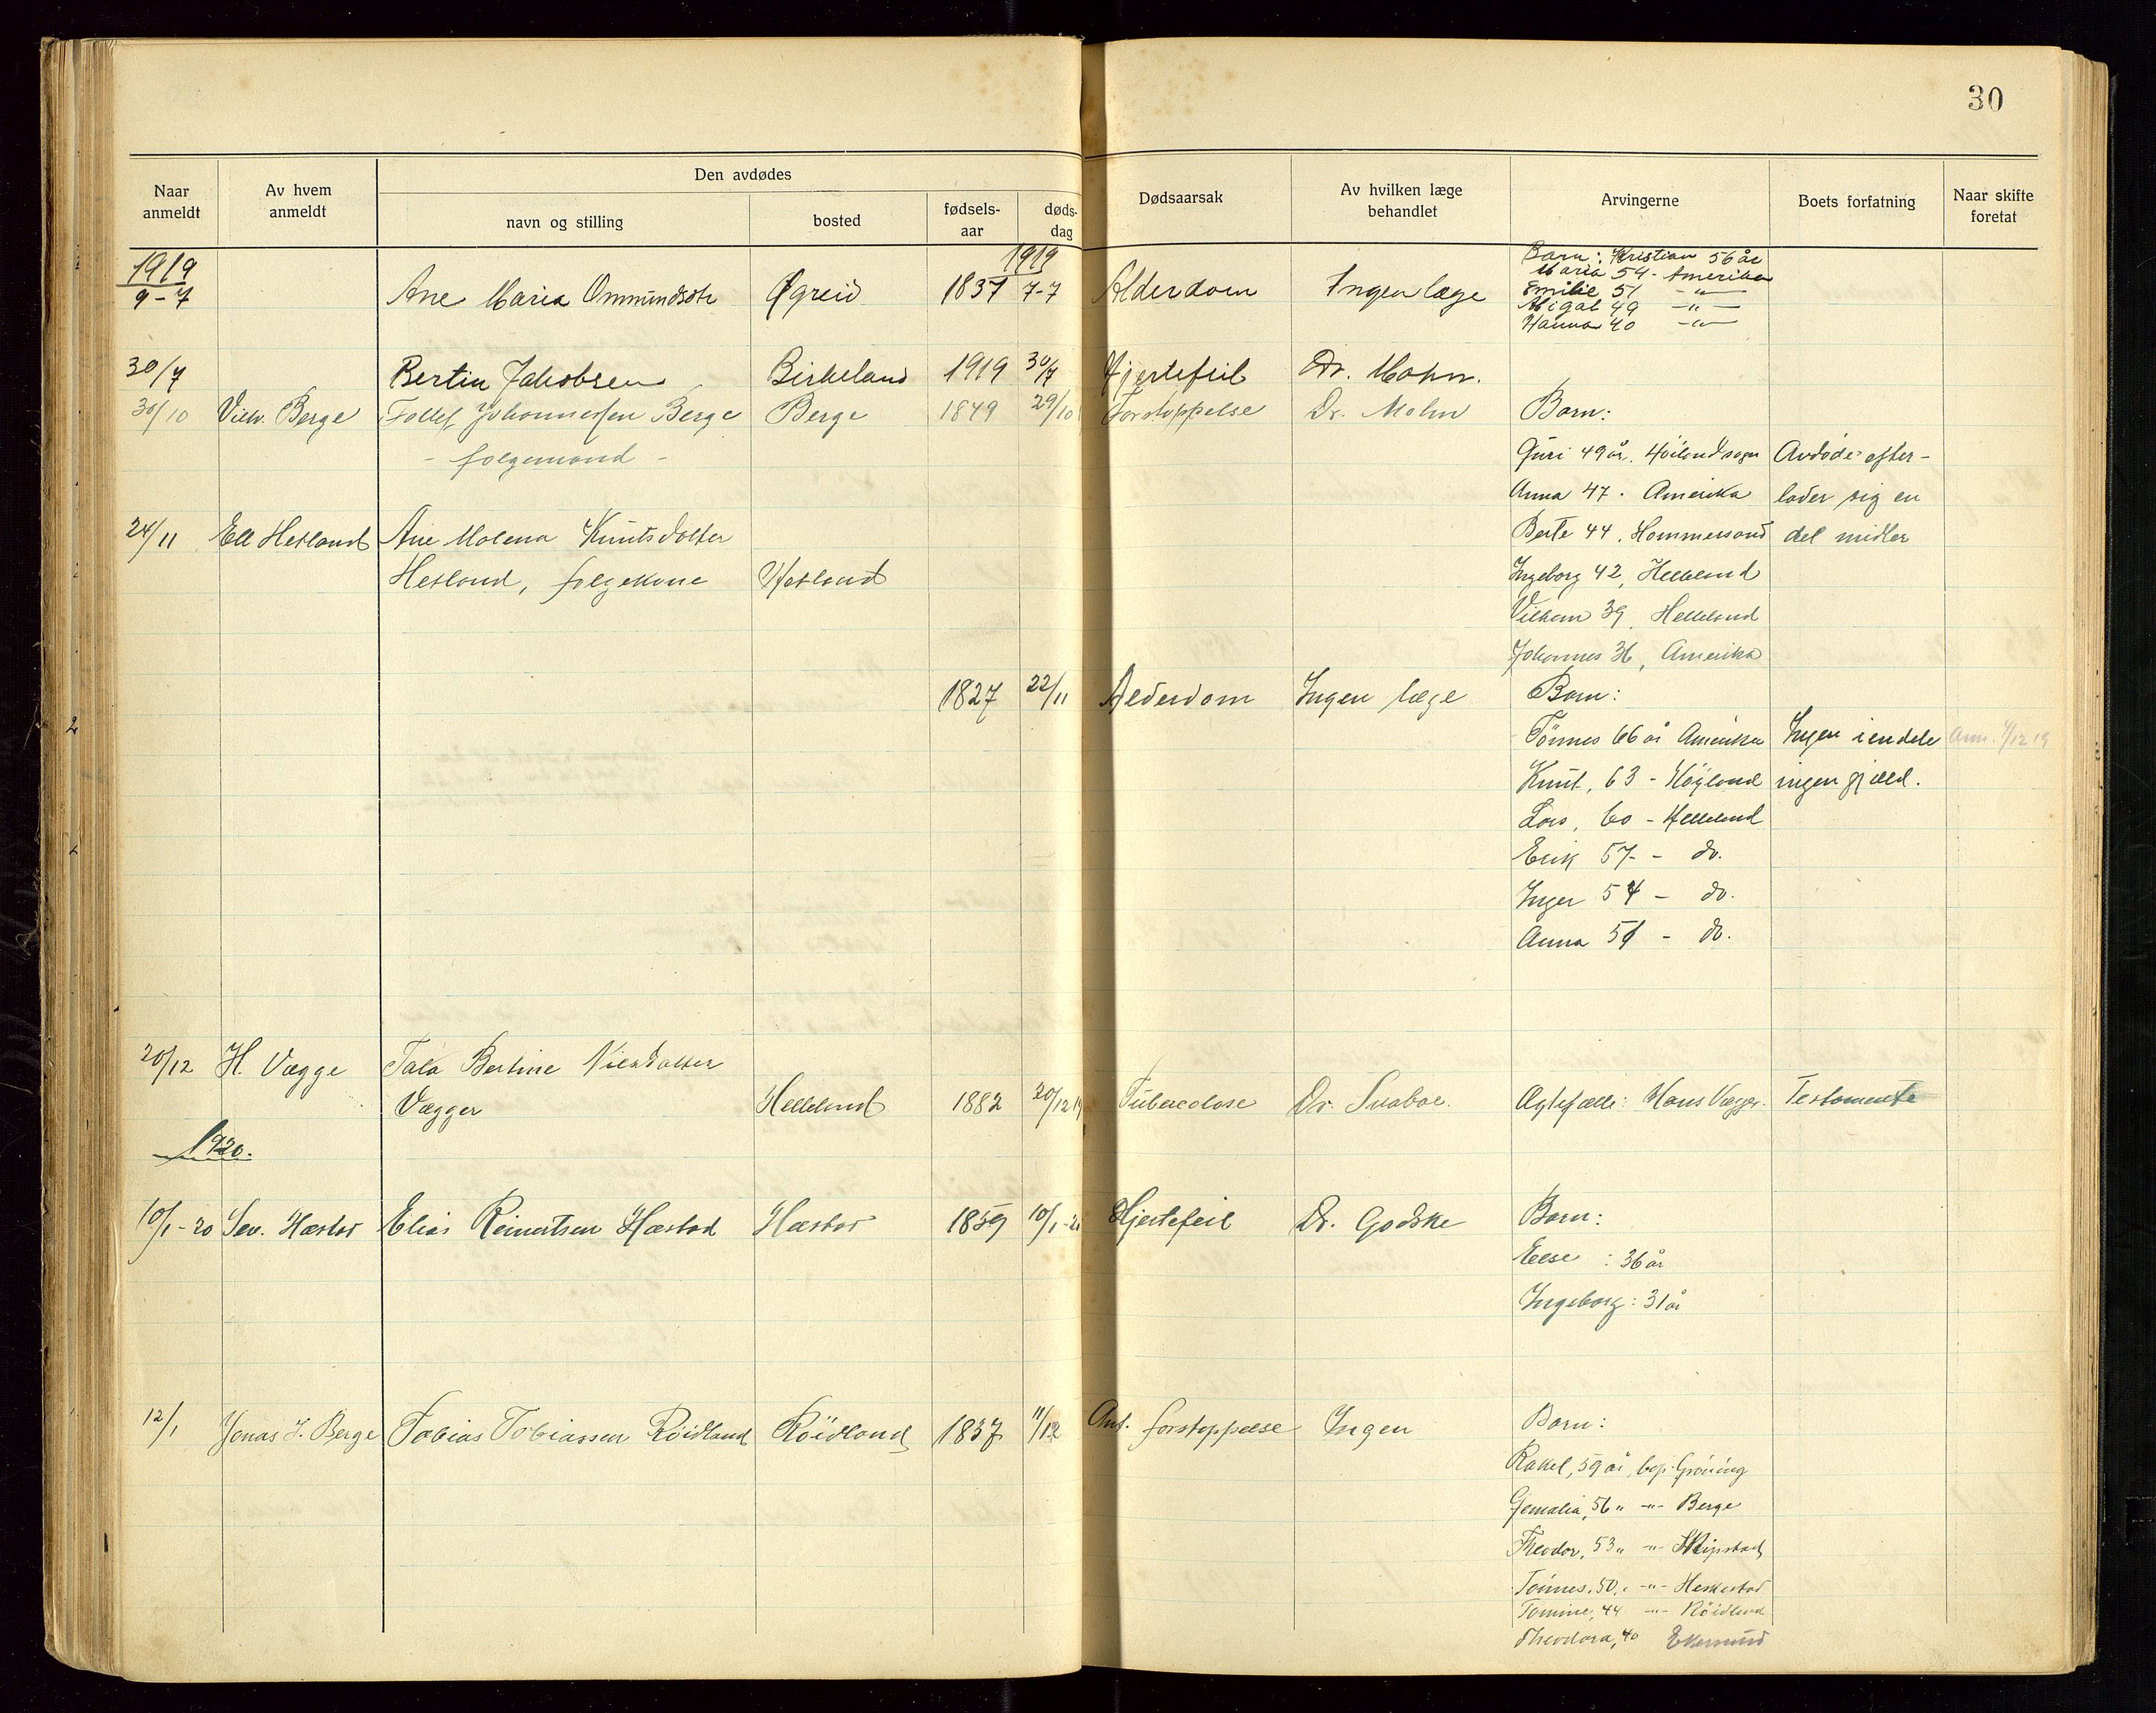 30
Naar anmeldt
Av hvem anmeldt
Den avdødes
navn og stilling
bosted
fødsels-aar
døds-dag
Dødsaarsak
Av hvilken læge behandlet
Arvingerne
Boets forfatning
Naar skifte foretat
1919
1919
9-7 Ane Maria Ommundsdtr Øgreid 1837 7-7 Alderdom Ingen læge
Barn: Kristian 56 år
Maria 54 - Amerika
Emilie 51 -"-
Abigal 49 -"-
Hanna 40 -"-
30/7 Bertin Jakobsen Birkeland 1919 30/7 Hjertefeil Dr. Mohn.
30/10 Vilh. Berge Tollef Johannessen Berge Berge 1849 29/10 Forstoppelse Dr. Mohn Barn:
- følgemand -
Guri 49 år. Høilandsogn Avdøde efter-
Anna 47. Amerika lader sig en
24/11 Ell Hetland Ane Malena Knutsdatter
Berte 44. Hommersand del midler
Hetland, følgekone Hetland
Ingeborg 42, Helleland
Vilhem 39, Helleland
Johannes 36, Amerika
1827 22/11 Alderdom Ingen læge Barn:
Tønnes 66 år Amerika Ingen iendele Anm. 4/12 19
Knut, 63 - Høyland ingen gjæld.
Lars, 60 - Helleland
Erik 57 - do.
Inger 54 - do.
Anna 51 - do.
20/12 H. Vægge Tala Bertine Nilsdatter
Vægger Helleland 1882 20/12 19 Tuberculose Dr. Svaboe. Ægtefælle: Hans Vægger. Testamente
1920.
10/1-20 Sev. Hæstad Elias Reinertsen Hæstad Hæstad 1859 10/1-20 Hjertefeil Dr. Godske Barn:
Else : 36 år
Ingeborg : 31 år
12/1 Jonas J. Berge Tobias Tobiassen Røidland Røidland 1837 11/12 Ant. forstoppelse Ingen Barn:
Rakel, 59 år, bop. Grøning
Gemalia, 56 " -"- Berge
Theodor, 53 " -"- Skipstad
Tønnes, 50 " -"- Heskestad
Tomine, 44 -"- Røidland
Theodora, 40 Ekersund